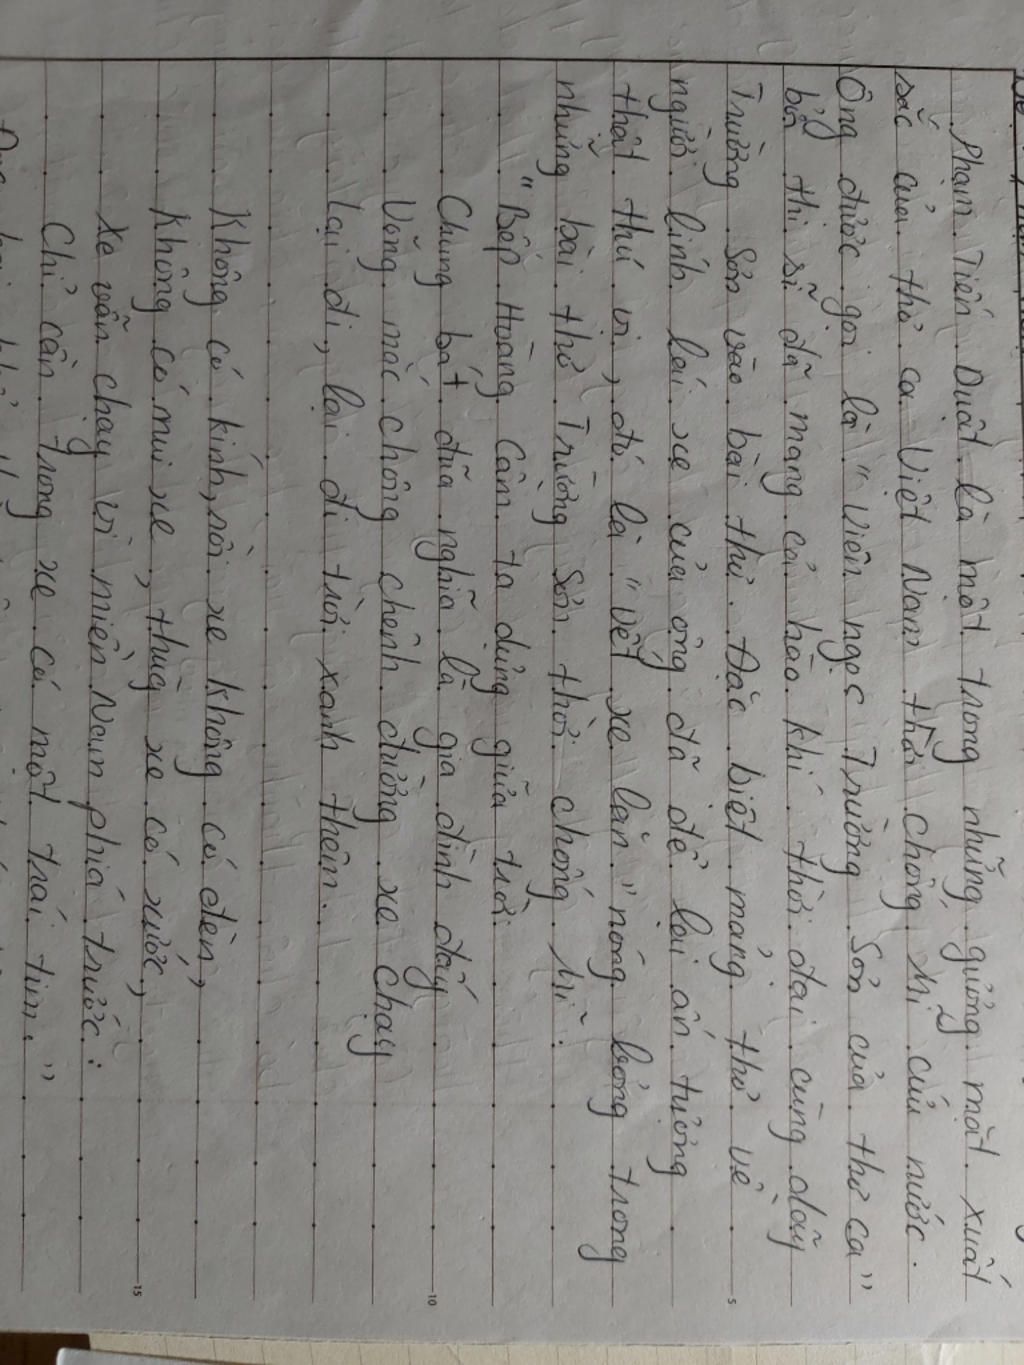 Phạm Tiến Duật là một trong những gương mặt xuất
sắc của thơ ca Việt Nam thời chống Mĩ cứu nước.
Ông được gọi là "Viên ngọc Trường Sơn của thơ ca"
bởi thi sĩ đã mang cả hào khí thời đại cùng dãy
Trường Sơn vào bài thơ. Đặc biệt mảng thơ về
người lính lái xe của ông đã để lại ấn tượng
thật thú vị, đó là "vết xe lăn" nóng bỏng trong
những bài thơ Trường Sơn thời chống Mĩ.
"Bếp Hoàng Cầm ta dựng giữa trời
Chung bát đũa nghĩa là gia đình đấy
Võng mắc chông chênh đường xe chạy
Lại đi, lại đi trời xanh thêm.
Không có kính, rồi xe không có đèn,
Không có mui xe, thùng xe có xước,
Xe vẫn chạy vì miền Nam phía trước:
Chỉ cần trong xe có một trái tim."